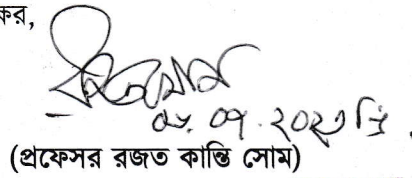 কর,
০৮.০৭.২০২৩ খ্রি.
(প্রফেসর রজত কান্তি সোম)